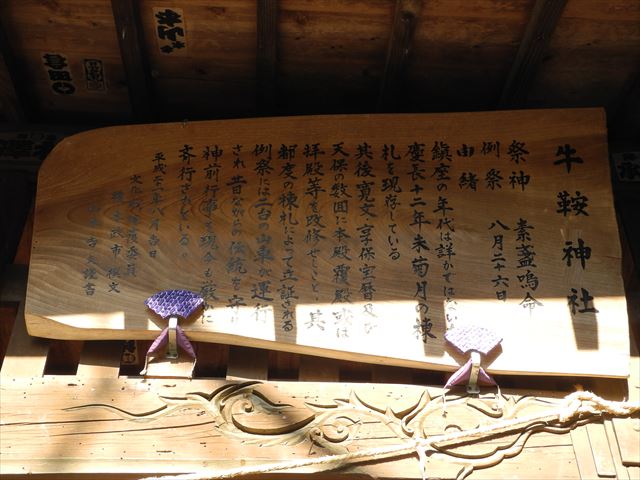 牛鞍神社
祭神　素盞嗚命
例祭　八月二十六日
由緒
鎮座の年代は詳かではないが
慶長十二年未菊月の棟
札を現存している
其後寛文享保宝暦及び
天保の数回に本殿覆殿或は
拝殿等を改修せしこと、其
都度の棟札によって立証される
例祭には二台の山車が運行
され昔ながらの伝統を守り
神前行事を現今も厳に
斉行されている。
平成 年八月吉日